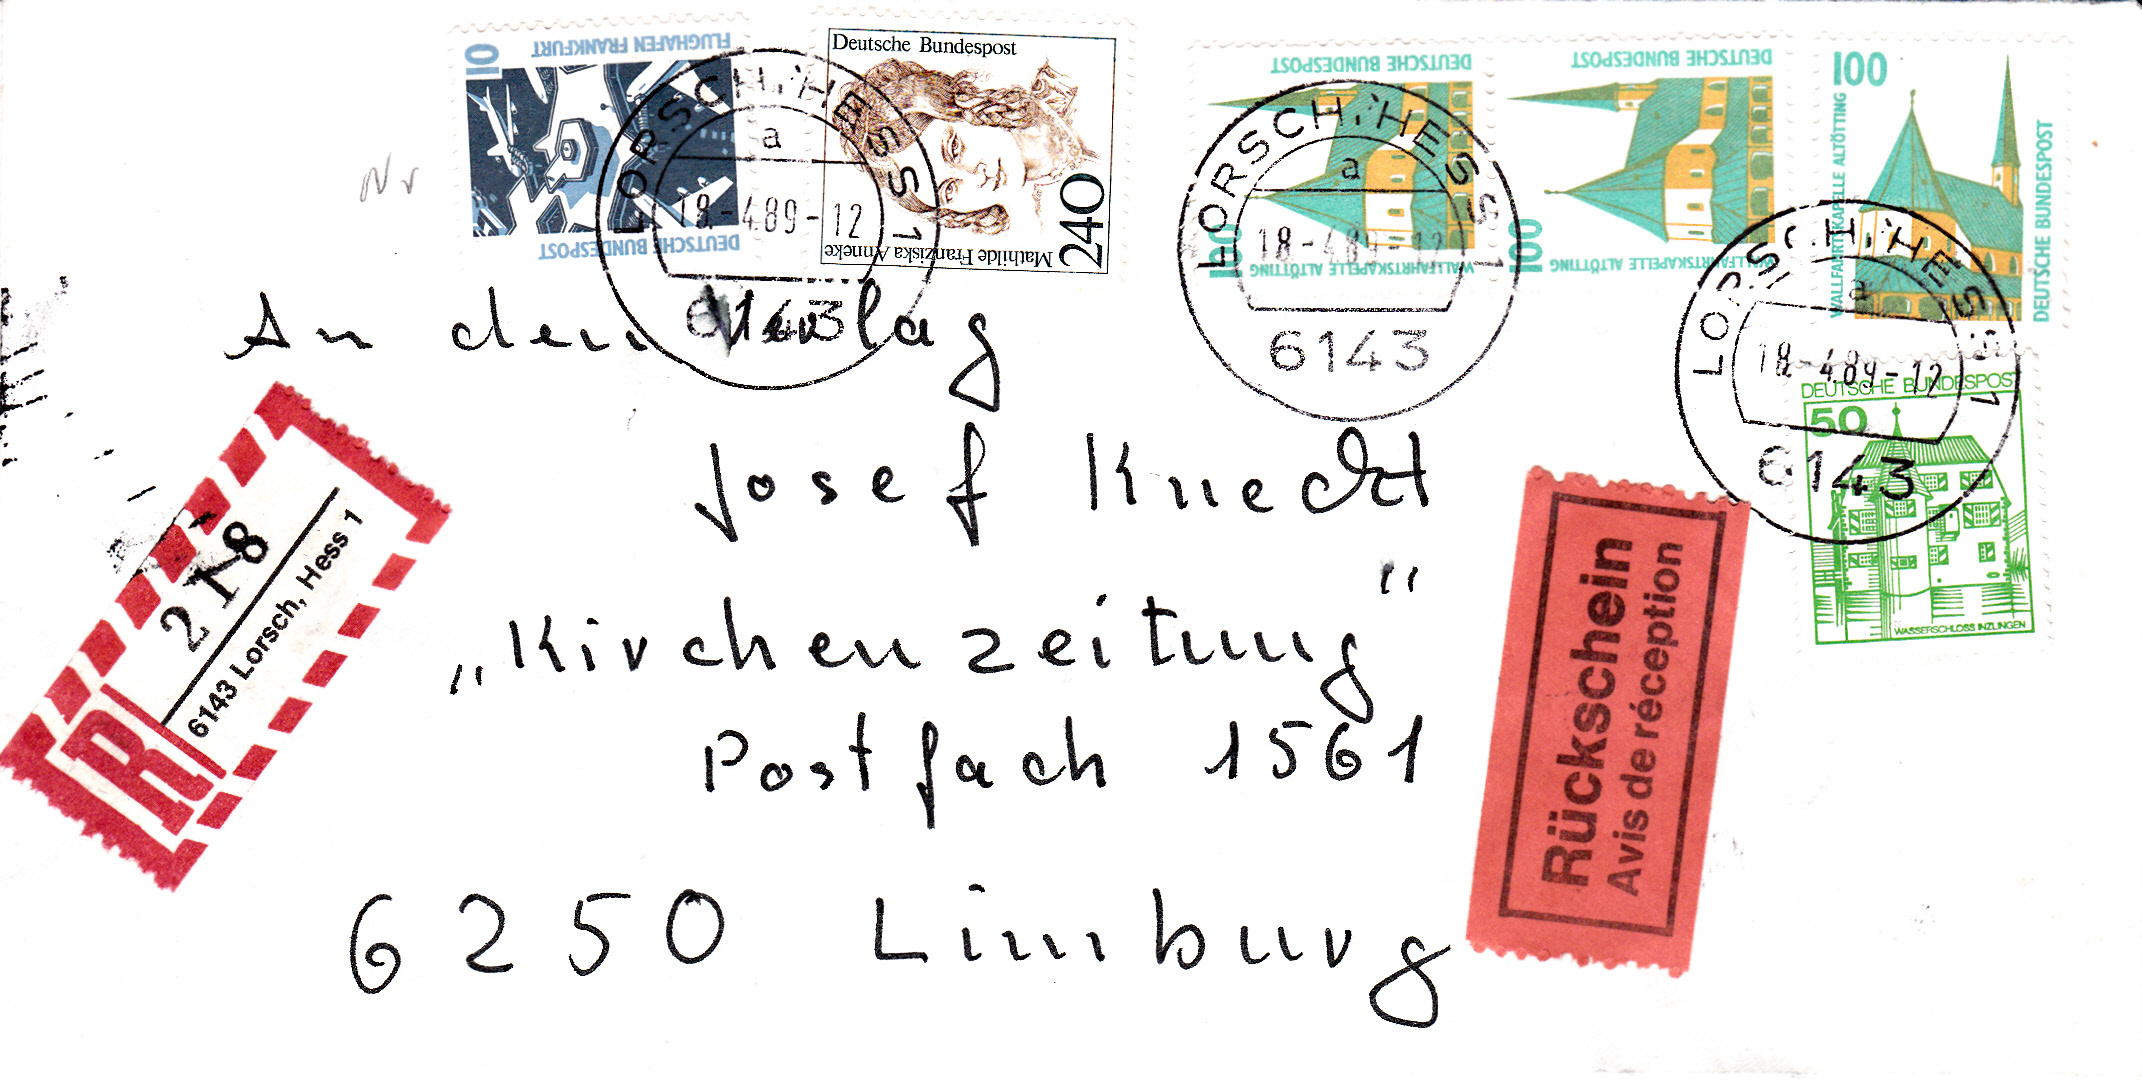 10
FLUGHAFEN FRANKFURT
DEUTSCHE BUNDESPOST
Deutsche Bundespost
Mathilde Franziska Anneke
240
DEUTSCHE BUNDESPOST
100
WALLFAHRTSKAPELLE ALTÖTTING
DEUTSCHE BUNDESPOST
100
WALLFAHRTSKAPELLE ALTÖTTING
100
WALLFAHRTSKAPELLE ALTÖTTING
DEUTSCHE BUNDESPOST
DEUTSCHE BUNDESPOST
50
WASSERSCHLOSS INZLINGEN
LORSCH, HESS 1
a
18.-4.89-12
6143
LORSCH, HESS 1
a
18.-4.89-12
6143
LORSCH, HESS 1
a
18.-4.89-12
6143
Nr
An den Verlag
Josef Knecht
„Kirchenzeitung“
Postfach 1561
6250 Limburg
R
218
6143 Lorsch, Hess 1
Rückschein
Avis de réception